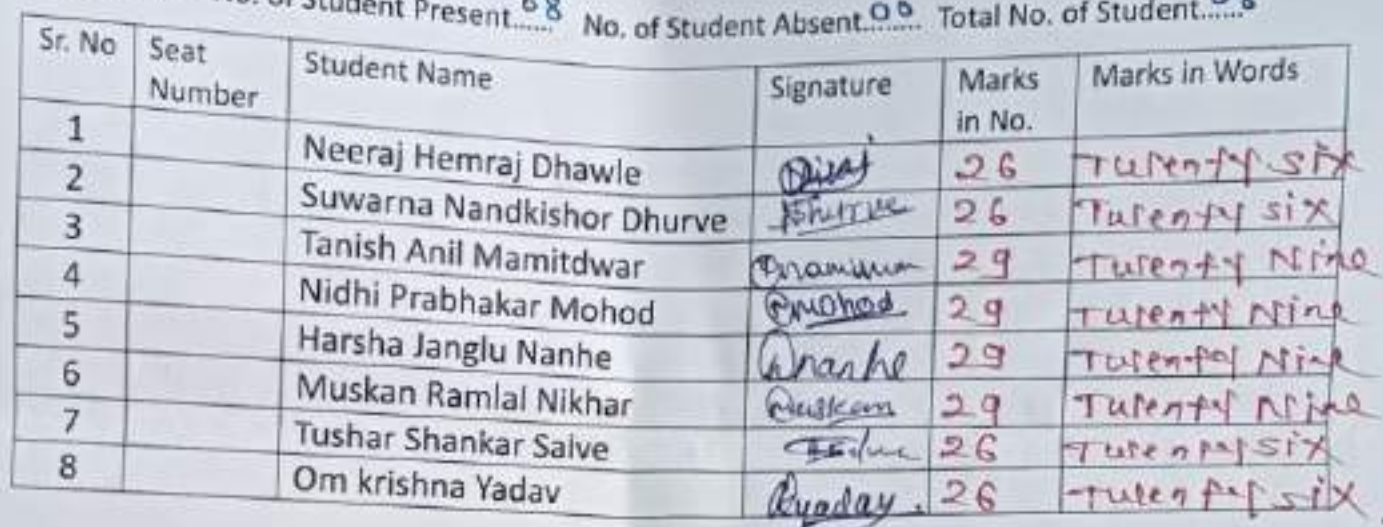 of Student Present...... 08 No. of Student Absent........ 00 Total No. of Student......
Sr. No Seat Number Student Name Signature Marks in No. Marks in Words
1 Neeraj Hemraj Dhawle 26 Twenty six
2 Suwarna Nandkishor Dhurve Dhurve 26 Twenty six
3 Tanish Anil Mamitdwar 29 Twenty Nine
4 Nidhi Prabhakar Mohod Pmohod 29 Twenty Nine
5 Harsha Janglu Nanhe nanhe 29 Twenty Nine
6 Muskan Ramlal Nikhar Muskan 29 Twenty Nine
7 Tushar Shankar Salve 26 Twenty six
8 Om krishna Yadav 26 Twenty six